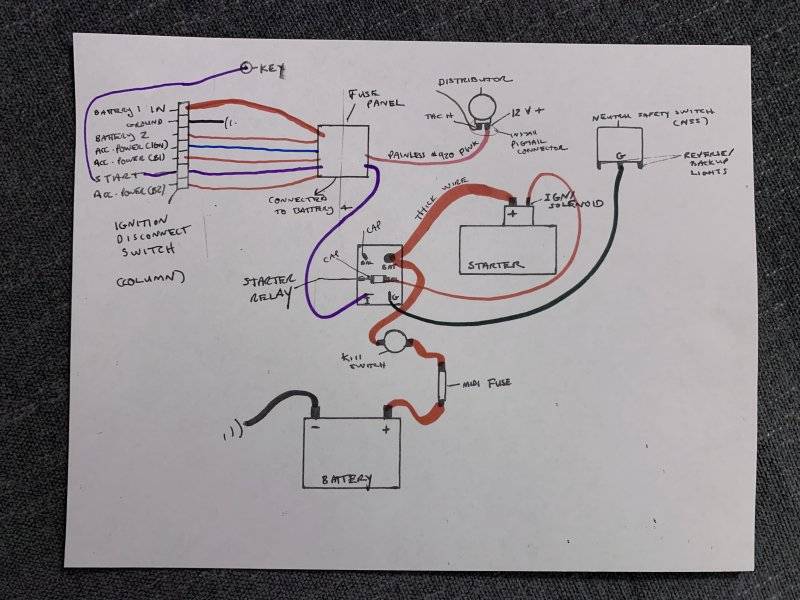 KEY
BATTERY 1 IN
GROUND
BATTERY 2
ACC. POWER (IGN)
ACC. POWER (B1)
START
ACC. POWER (B2)
IGNITION
DISCONNECT
SWITCH
(COLUMN)
FUSE
PANEL
CONNECTED
TO BATTERY +
PAINLESS #920 PINK
DISTRIBUTOR
TACH
12 V +
PIGTAIL
CONNECTOR
NEUTRAL SAFETY SWITCH
(NSS)
G
REVERSE/
BACKUP
LIGHTS
THICK WIRE
+
IGN/
SOLENOID
STARTER
CAP
CAP
BAT
BAT
I
G
STARTER
RELAY
KILL
SWITCH
MIDI FUSE
-
+
BATTERY